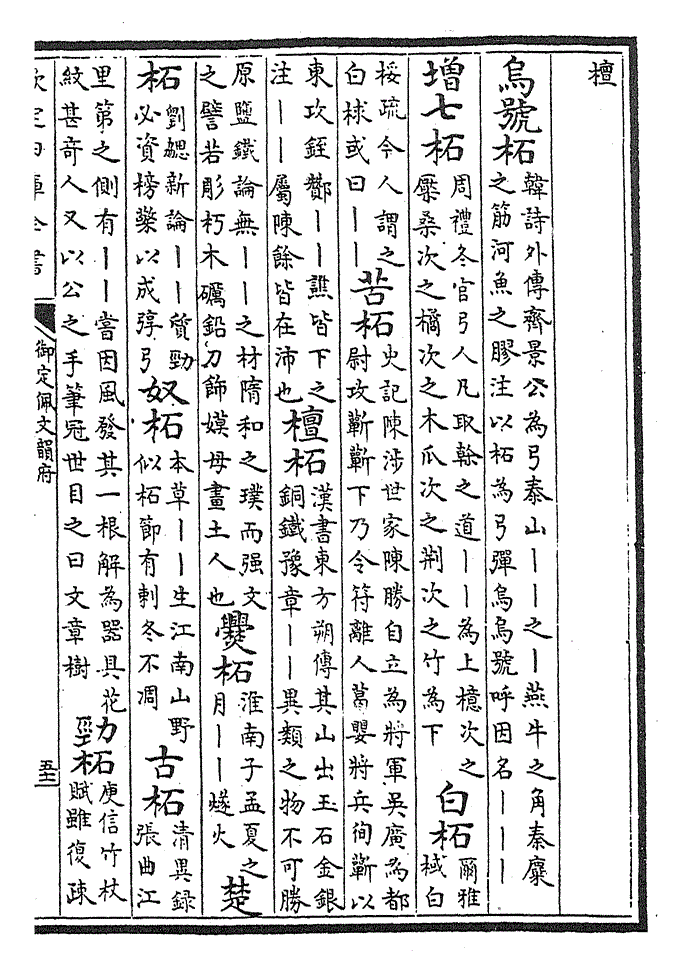 檀
烏號柘韓詩外傳齊景公為弓泰山丨丨之丨燕牛之角秦麋
之筋河魚之膠注以柘為弓彈烏烏號呼因名丨丨丨
增七柘周禮冬官弓人凡取榦之道丨丨為上檍次之
檿桑次之橘次之木瓜次之荆次之竹為下
白柘爾雅
棫白
桵疏今人謂之
白梂或曰丨丨
苦柘史記陳涉世家陳勝自立為將軍吳廣為都
尉攻蘄蘄下乃令符離人葛嬰將兵徇蘄以
東攻銍酇丨丨譙皆下之
注丨丨屬陳餘皆在沛也
檀柘漢書東方朔傳其山出玉石金銀
銅鐵豫章丨丨異類之物不可勝
原鹽鐵論無丨丨之材隋和之璞而强文
之譬若彫朽木礪鉛刀飾嫫母畫土人也
爨柘淮南子孟夏之
月丨丨燧火
楚
柘劉勰新論丨丨質勁
必資榜檠以成弴弓
奴柘本草丨丨生江南山野
似柘節有刺冬不凋
古柘清異録
張曲江
里第之側有丨丨嘗因風發其一根解為器具花
紋甚奇人又以公之手筆冠世目之曰文章樹
勁柘庾信竹杖
賦雖復疎
欽定四庫全書
御定佩文韻府